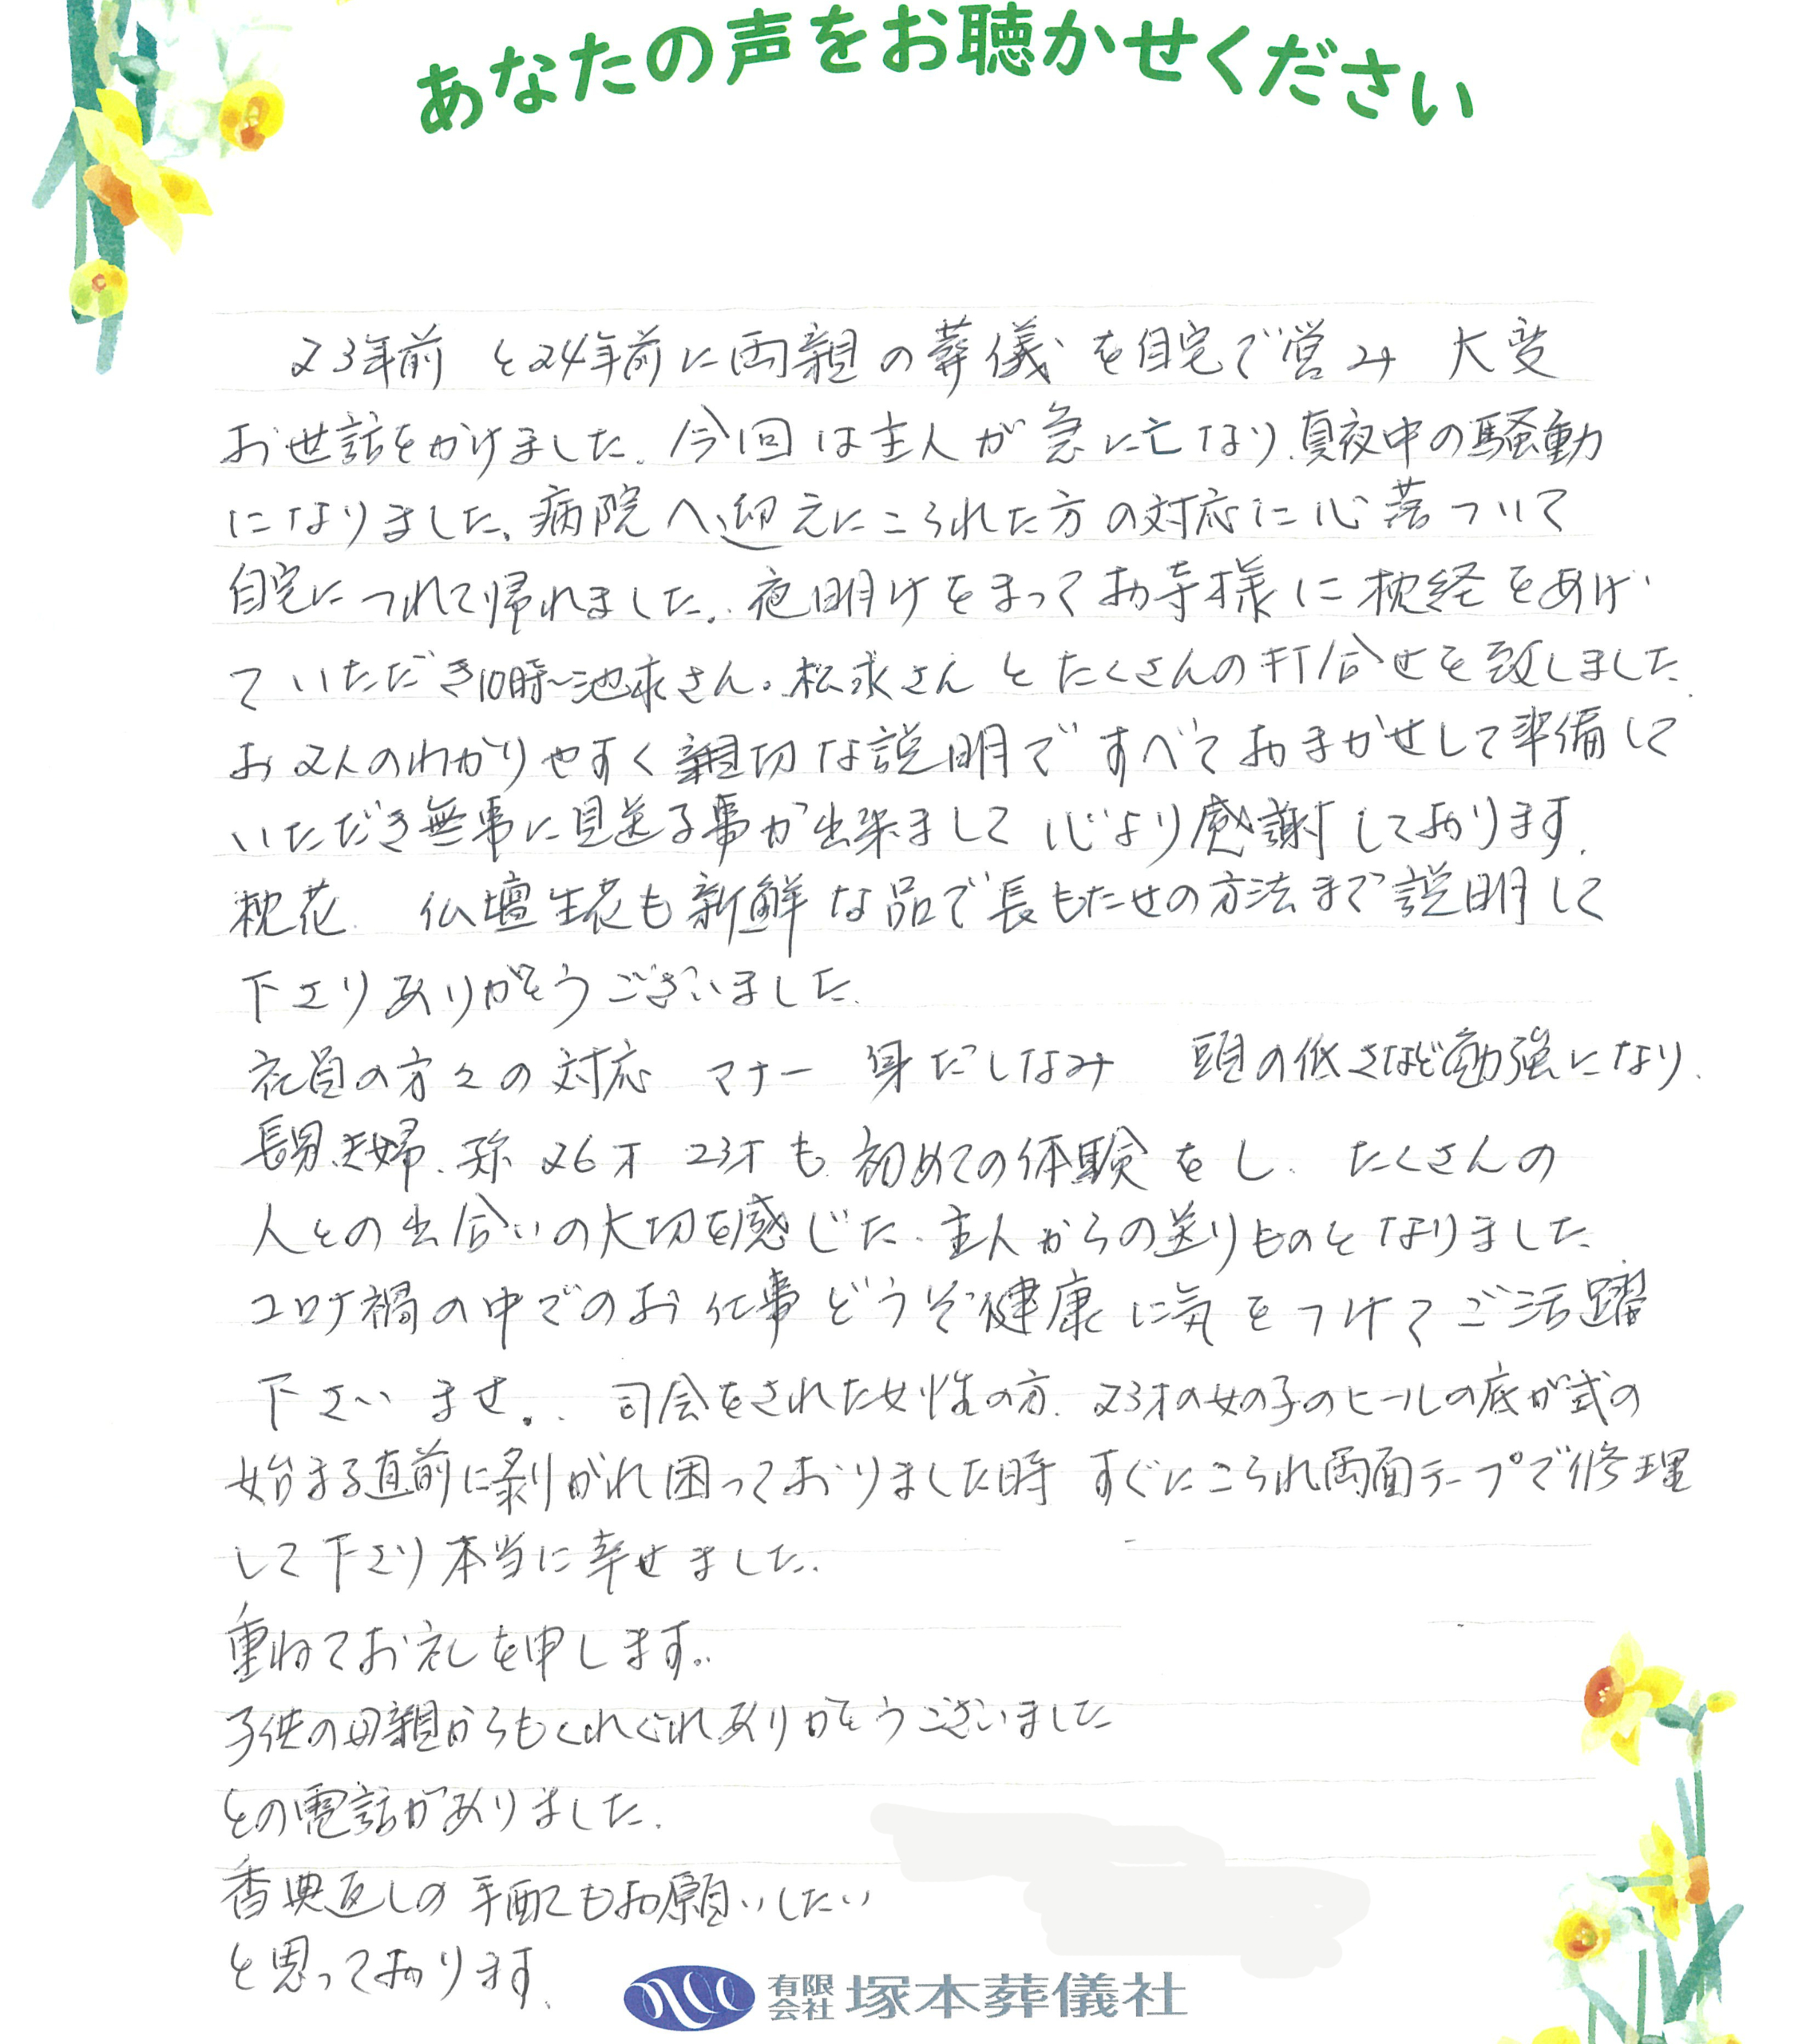 あなたの声をお聴かせください
23年前 と24年前に両親の葬儀を自宅で営み 大変
お世話をかけました。今回は主人が急に亡なり、真夜中の騒動
になりました、病院へ迎えにこられた方の対応に心落ついて
自宅につれて帰れました。夜明けをまってお寺様に枕経をあげ
ていただき10時〜池永さん。松永さんとたくさんの打合せを致しました。
お2人のわかりやすく親切な説明ですべておまかせして準備して
いただき無事に見送る事が出来まして心より感謝しております。
枕花 仏壇生花も新鮮な品で長もたせの方法まで説明して
下さりありがとうございました。
社員の方々の対応 マナー 身だしなみ 頭の低さなど勉強になり、
長男夫婦、孫26才 23才も初めての体験をし、たくさんの
人との出合いの大切を感じた、主人からの送りものとなりました。
コロナ禍の中でのお仕事どうぞ健康に気をつけてご活躍
下さいませ。. 司会をされた女性の方、23才の女の子のヒールの底が式の
始まる直前に剥がれ困っておりました時 すぐにこられ両面テープで修理
して下さり本当に幸せました。
重ねてお礼を申します。
子供の母親からもくれぐれありがとうございました
との電話がありました。
香典返しの手配もお願いしたい
と思っております。
有限会社 塚本葬儀社